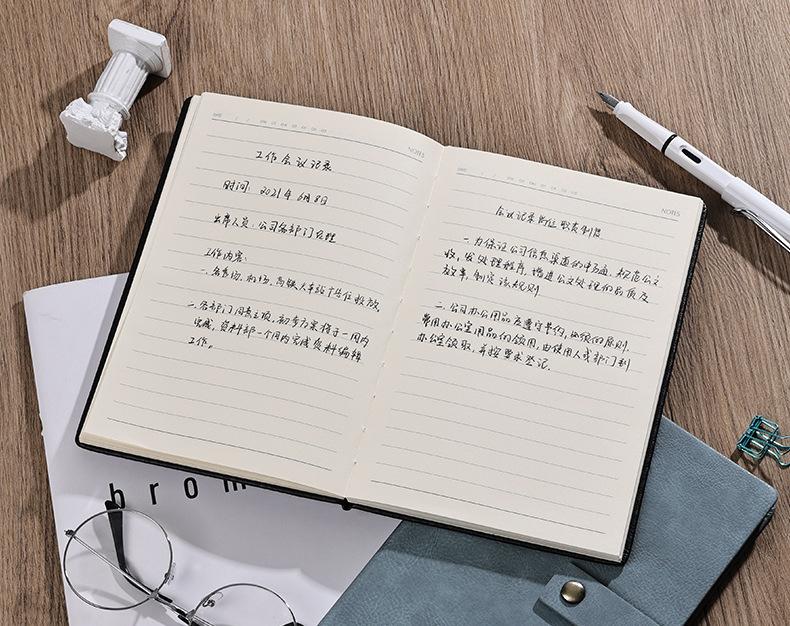 NOTES
工作会议记录
时间：2021年6月8日
出席人员：公司各部门经理
工作内容：
一.各客场、机场、高铁火车站
二.各部门同意立项，初步方案将于一周内
完成，资料部一个月内完成资料编辑
工作。
NOTES
会议记录岗位职责制度
一.为保证公司信息渠道的畅通、规范公文
收，发处理程序，增进公文处理的品质及
效率，制定该规则
二.公司办公用品应遵守节约，必须的原则.
费用办公室用品的领用，由使用人或部门到
办公室领取，并按要求登记.
brom